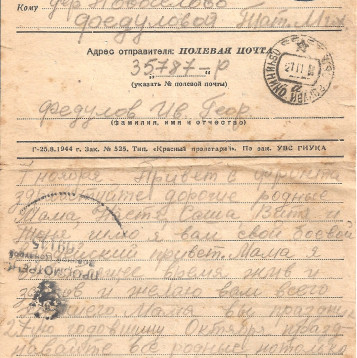 Кому
дер Новоселово
Федуловой Тат. Мих
Адрес отправителя: ПОЛЕВАЯ ПОЧТА
35787-р
(указать № полевой почты)
Федулов Ив Геор
(фамилия, имя и отчество)
Г-25.8.1944 г. Зак. № 525. Тип. «Красный пролетарий». По зак. УВС ГИУКА
1 ноября Привет с фронта
здравствуйте дорогие родные
Мама Настя Саша Витя и
Женя шлю я вам свой боевой
привет. Мама я
время жив и
здоров и желаю вам всего
Мама вы праздни
27-ю годовщину Октября празд
все родные
ПРОСМОТРЕНО